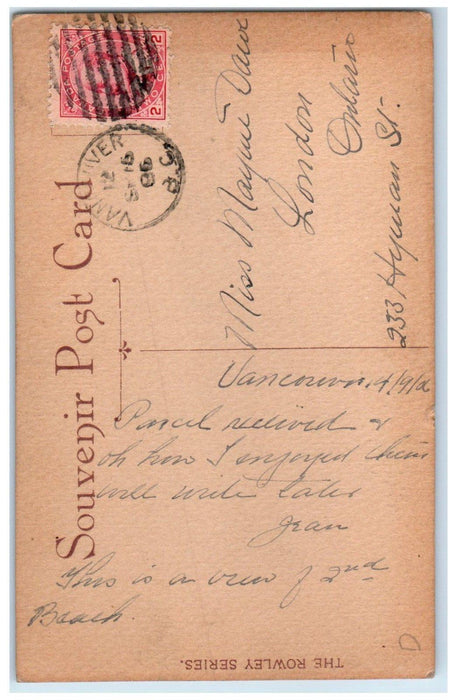 Souvenir Post Card
VANCOUVER
Miss Mayme
London
Ontario
233 Hyman St.
Vancouver
Parcel recieved &
oh how I enjoyed them
will write later
Jean
This is a view of 2nd
Beach.
THE ROWLEY SERIES.
D